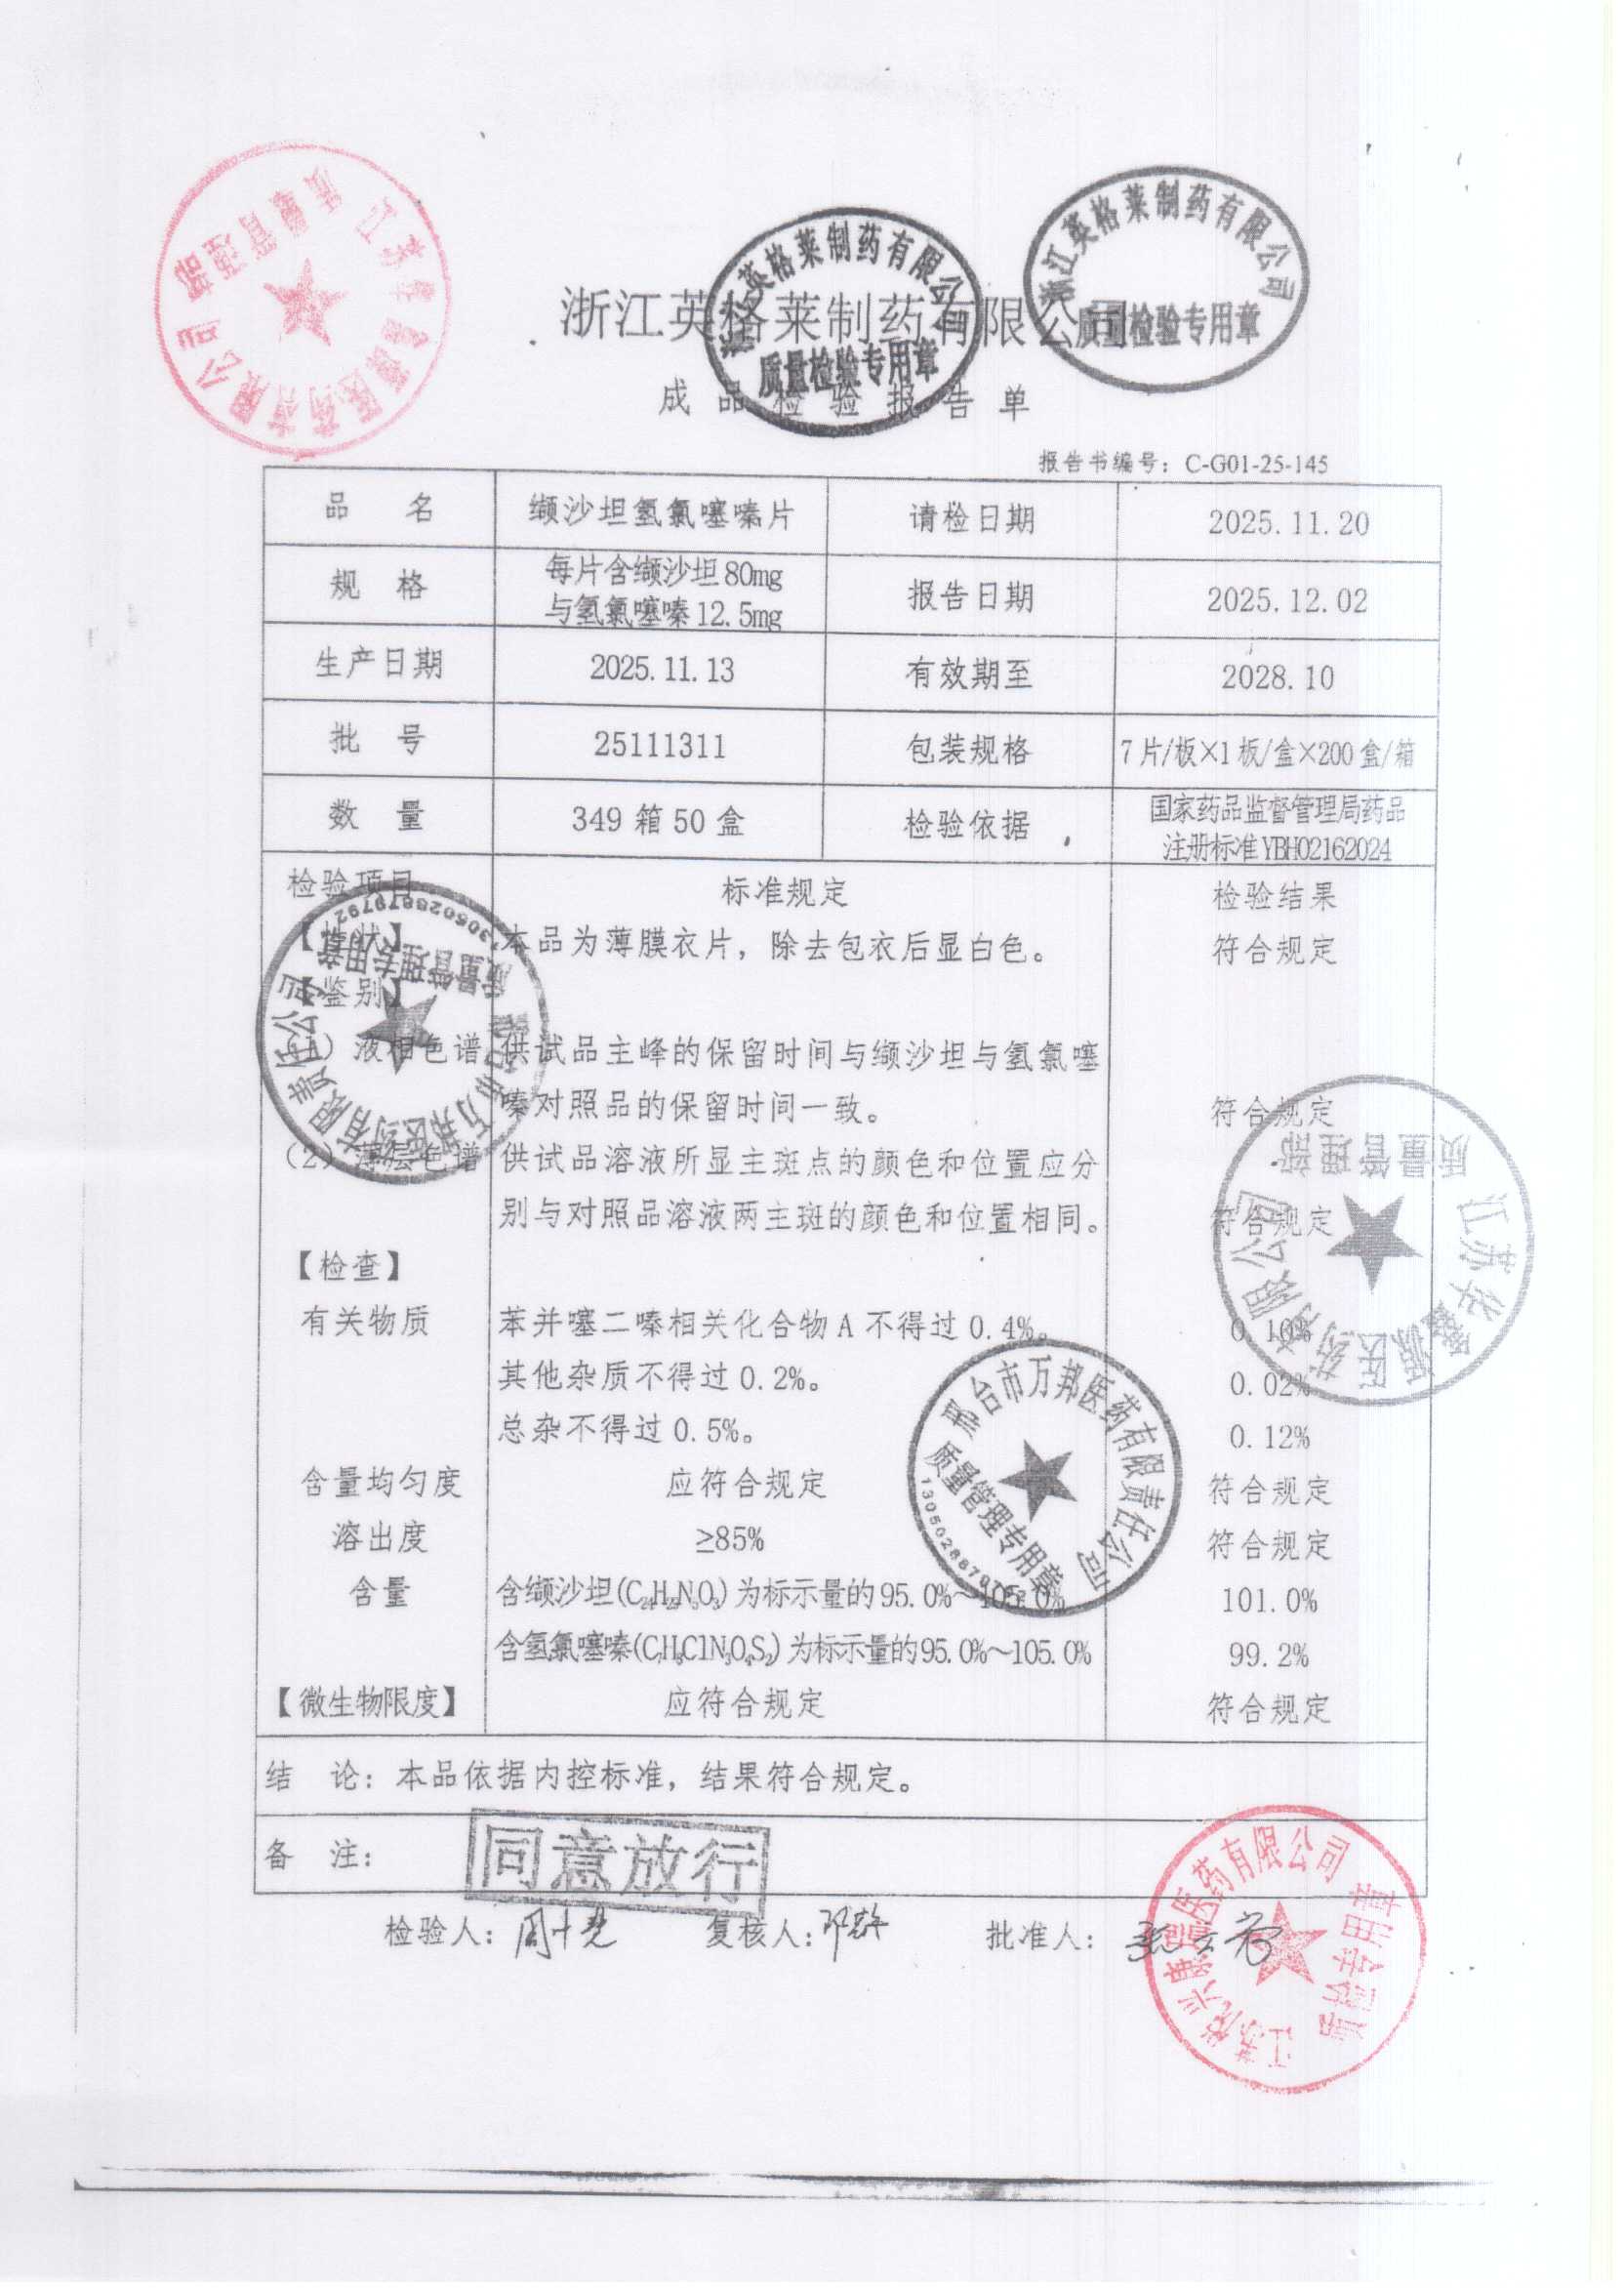 浙江英格莱制药有限公司
成品检验报告单
浙江英格莱制药有限公司
质量检验专用章
浙江英格莱制药有限公司
质量检验专用章
报告书编号：C-G01-25-145
品 名 缬沙坦氢氯噻嗪片 请检日期 2025.11.20
规 格 每片含缬沙坦80mg与氢氯噻嗪12.5mg 报告日期 2025.12.02
生产日期 2025.11.13 有效期至 2028.10
批 号 25111311 包装规格 7片/板×1板/盒×200盒/箱
数 量 349箱50盒 检验依据 国家药品监督管理局药品注册标准YBH02162024
检验项目 标准规定 检验结果
【性状】 本品为薄膜衣片，除去包衣后显白色。 符合规定
【鉴别】
（1）液相色谱 供试品主峰的保留时间与缬沙坦与氢氯噻
嗪对照品的保留时间一致。 符合规定
（2）薄层色谱 供试品溶液所显主斑点的颜色和位置应分
别与对照品溶液两主斑的颜色和位置相同。 符合规定
【检查】
有关物质 苯并噻二嗪相关化合物A不得过0.4%。 0.10%
其他杂质不得过0.2%。 0.02%
总杂不得过0.5%。 0.12%
含量均匀度 应符合规定 符合规定
溶出度 ≥85% 符合规定
含量 含缬沙坦(C₂₄H₂₉N₅O₃)为标示量的95.0%～105.0% 101.0%
含氢氯噻嗪(C₇H₈ClN₃O₄S₂)为标示量的95.0%～105.0% 99.2%
【微生物限度】 应符合规定 符合规定
邢台市万邦医药有限责任公司
质量管理专用章
邢台市万邦医药有限责任公司
质量管理专用章
质量管理部
结 论：本品依据内控标准，结果符合规定。
备 注：
同意放行
检验人： 复核人： 批准人：
医药有限公司
质检专用章